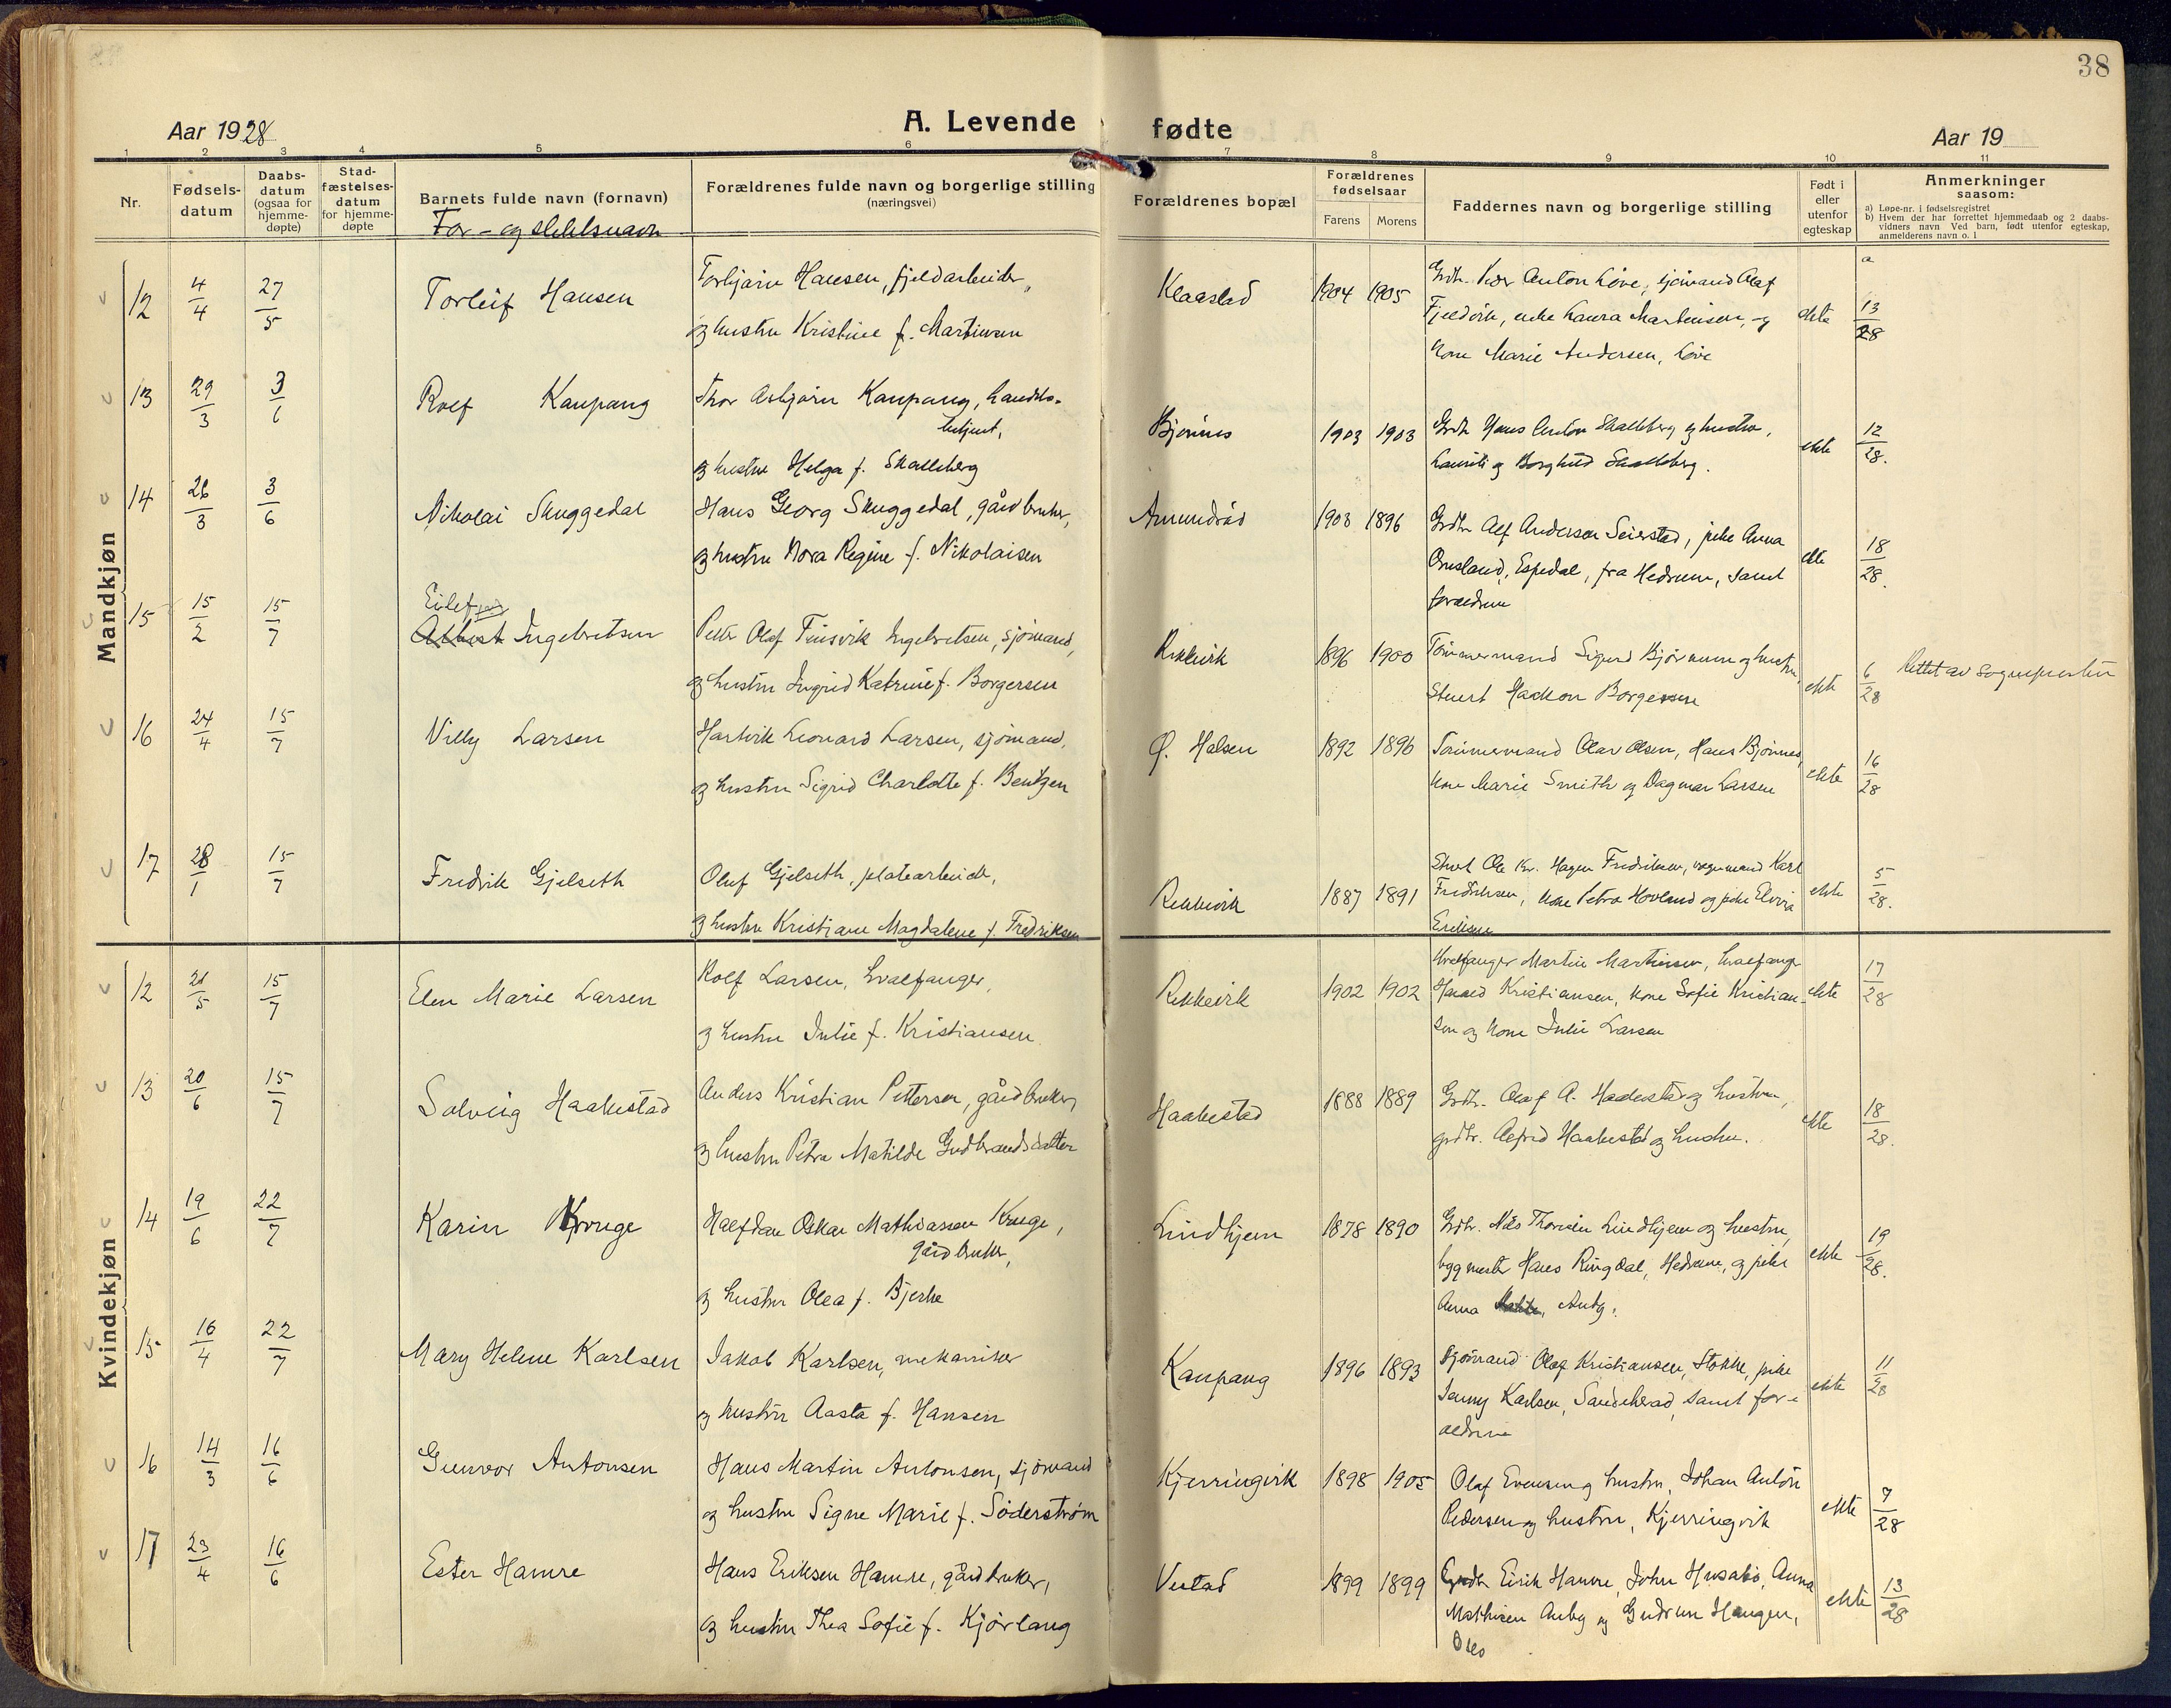 38
Aar 1928
A. Levende fødte
Aar 19
1 2 3 4 5 6 7 8 9 10 11
Nr.
Fødsels-datum
Daabs-datum (ogsaa for hjemme-døpte)
Stad-fæstelses-datum for hjemme-døpte
Barnets fulde navn (fornavn)
For- og slektsnavn
Forældrenes fulde navn og borgerlige stilling
(næringsvei)
Forældrenes bopæl
Forældrenes fødselsaar
Farens Morens
Faddernes navn og borgerlige stilling
Født i eller utenfor egteskap
Anmerkninger
saasom:
a) Løpe-nr. i fødselsregistret
b) Hvem der har forrettet hjemmedaab og 2 daabs-
vidners navn Ved barn, født utenfor egteskap,
anmelderens navn o. l
Mandkjøn
12 4/4 27/5 Torleif Hansen
Torbjørn Hansen, fjeldarbeider,
og hustru Kristine f. Martinsen
Klaastad 1904 1905
Grdbr. Peder Anton Løve, sjømand Olaf
Fjeldvik, enke Laura Martinsen, og
kone Marie Andersen, Løve
ekte a 13/28
13 29/3 3/6 Rolf Kaupang
Thor Asbjørn Kaupang, handels-
betjent,
og hustru Helga f. Skalleberg
Bjønnes 1903 1903
Grdbr Hans Anton Skalleberg og hustru,
Lauritz og Borghild Skalleberg.
ekte 12/28.
14 26/3 3/6 Nikolai Skuggedal
Hans Georg Skuggedal, gårdbruker,
og hustru Nora Regine f. Nikolaisen
Amundrød 1903 1896
Grdbr Alf Andersen Seierstad, pike Anna
Omsland, Espedal, fra Hedrum, samt
foreldrene
ekte 18/28.
15 15/2 15/7 Eilef
Albert Ingebretsen
Peter Olaf Finsvik Ingebretsen, sjømand,
og hustru Ingrid Katrine f. Borgersen
Rekkevik 1896 1900
Tømmermand Sigurd Bjørnum og hustru,
Stuert Haakon Borgersen
ekte 6/28 Rettet av sognepresten
16 24/4 15/7 Villy Larsen
Hartvik Leonard Larsen, sjømand,
og hustru Sigrid Charlotte f. Bentzen
Ø. Halsen 1892 1896
Tømmermand Olav Olsen, Hans Bjønnes,
kone Marie Smith og Dagmar Larsen
ekte 16/28
17 28/1 15/7 Fredrik Gjelseth
Oluf Gjelseth, platearbeider,
og hustru Kristiane Magdalene f. Fredriksen
Rekkevik 1887 1891
Stuert Ole Kr. Hagen Fredriksen, vognmand Karl
Fredriksen, kone Petra Hovland og pike Elvira
Eriksen
ekte 5/28.
Kvindekjøn
12 21/5 15/7 Elen Marie Larsen
Rolf Larsen, hvalfanger,
og hustru Julie f. Kristiansen
Rekkevik 1902 1902
Hvalfanger Martin Martinsen, hvalfanger
Harald Kristiansen, kone Sofie Kristian-
sen og kone Julie Larsen
ekte 17/28
13 20/6 15/7 Solveig Haakestad
Anders Kristian Pettersen, gårdbruker,
og hustru Petra Matilde Gudbrandsdatter
Haakestad 1888 1889
Grdbr. Olaf A. Haakestad og hustru,
grdbr. Alfred Haakestad og hustru.
ekte 18/28.
14 19/6 22/7 Karin Kruge
Halfdan Oskar Mathiassen Kruge,
gårdbruker,
og hustru Olea f. Bjerke
Lindhjem 1878 1890
Grdbr. Nils Thorsen Lindhjem og hustru,
byggmester Hans Ringdal, Hedrum, og pike
Anna , Auby.
ekte 19/28.
15 16/4 22/7 Mary Helene Karlsen
Jakob Karlsen, mekaniker
og hustru Aasta f. Hansen
Kaupang 1896 1893
Sjømand Olaf Kristiansen, Stokke, pike
Jenny Karlsen, Sandeherad, samt for-
eldrene
ekte 11/28
16 14/3 16/6 Gunvor Antonsen
Hans Martin Antonsen, sjømand
og hustru Signe Marie f. Söderstrøm
Kjerringvik 1898 1905
Olaf Evensen og hustru, Johan Anton
Pedersen og hustru, Kjerringvik
ekte 7/28
17 23/4 16/6 Ester Hamre
Hans Eriksen Hamre, gårdbruker,
og hustru Thea Sofie f. Kjørlaug
Vestad 1899 1899
Grdbr Eirik Hamre, John Husabø, Anna
Mathisen Auby og Gudrun Haugen,
Oslo
ekte 13/28